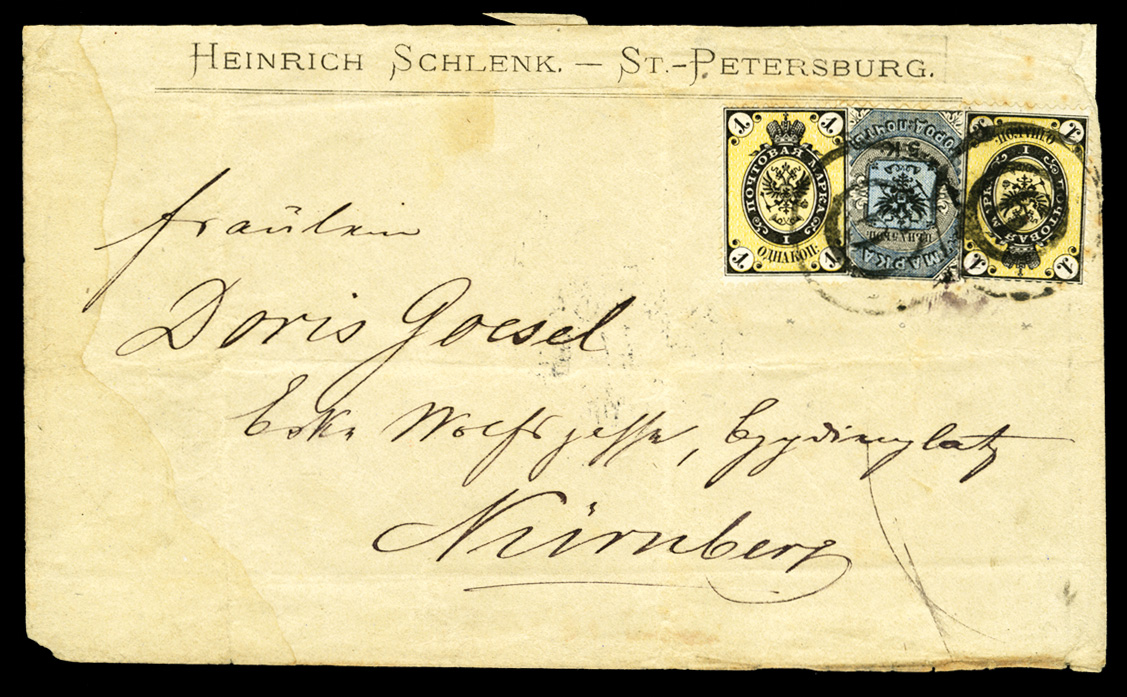 HEINRICH SCHLENK. — ST.-PETERSBURG.
1 1
ПОЧТОВАЯ МАРКА
1
ОДНА КОП:
1 1
ГОРОД. ПОЧТЫ
5 К.
ЦѢНА 5 КОП.
МАРКА
1 1
ПОЧТОВАЯ МАРКА
1
ОДНА КОП:
1 1
Fräulein
Doris Goesel
Ecke Wolfsgasse, Egydienplatz
Nürnberg